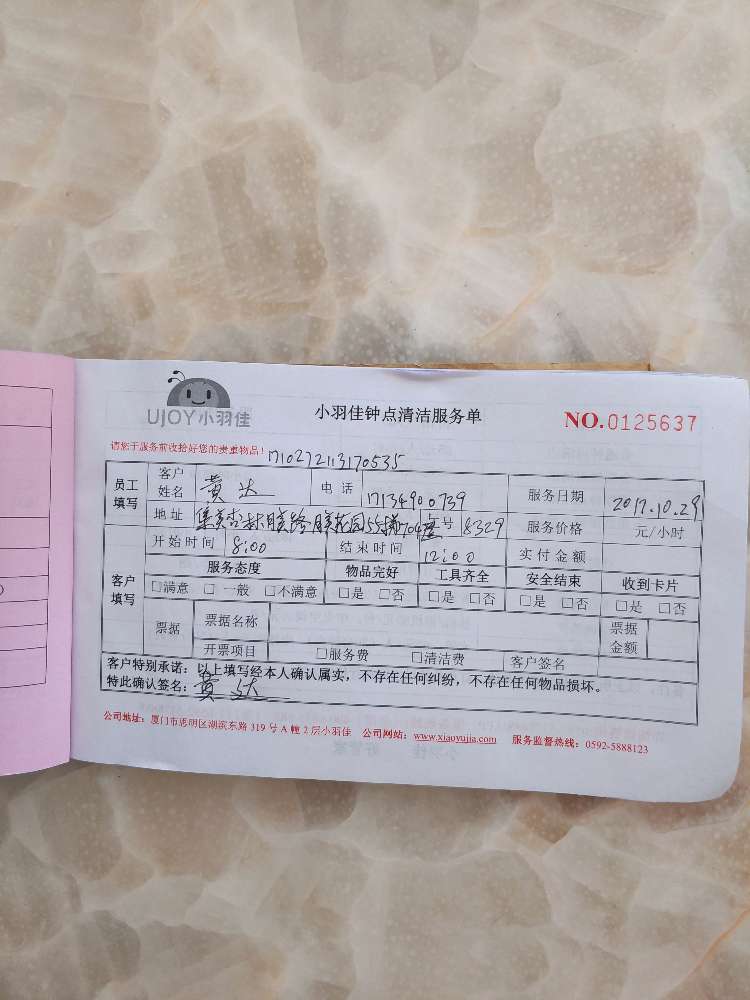 UJOY小羽佳
小羽佳钟点清洁服务单
NO.0125637
请您于服务前收拾好您的贵重物品!
1710272113170535
员工填写 客户姓名 黄达 电话 17134900739 服务日期 2017.10.29
地址 集美杏林 路 花园55梯704 工号 8329 服务价格 元/小时
客户填写 开始时间 8:00 结束时间 12:00 实付金额
服务态度 物品完好 工具齐全 安全结束 收到卡片
□满意 □一般 □不满意 □是 □否 □是 □否 □是 □否 □是 □否
票据 票据名称 票据金额
开票项目 □服务费 □清洁费 客户签名
客户特别承诺:以上填写经本人确认属实,不存在任何纠纷,不存在任何物品损坏。
特此确认签名:黄达
公司地址:厦门市思明区湖滨东路 319 号 A 幢 2 层小羽佳 公司网站:www.xiaoyujia.com 服务监督热线:0592-5888123